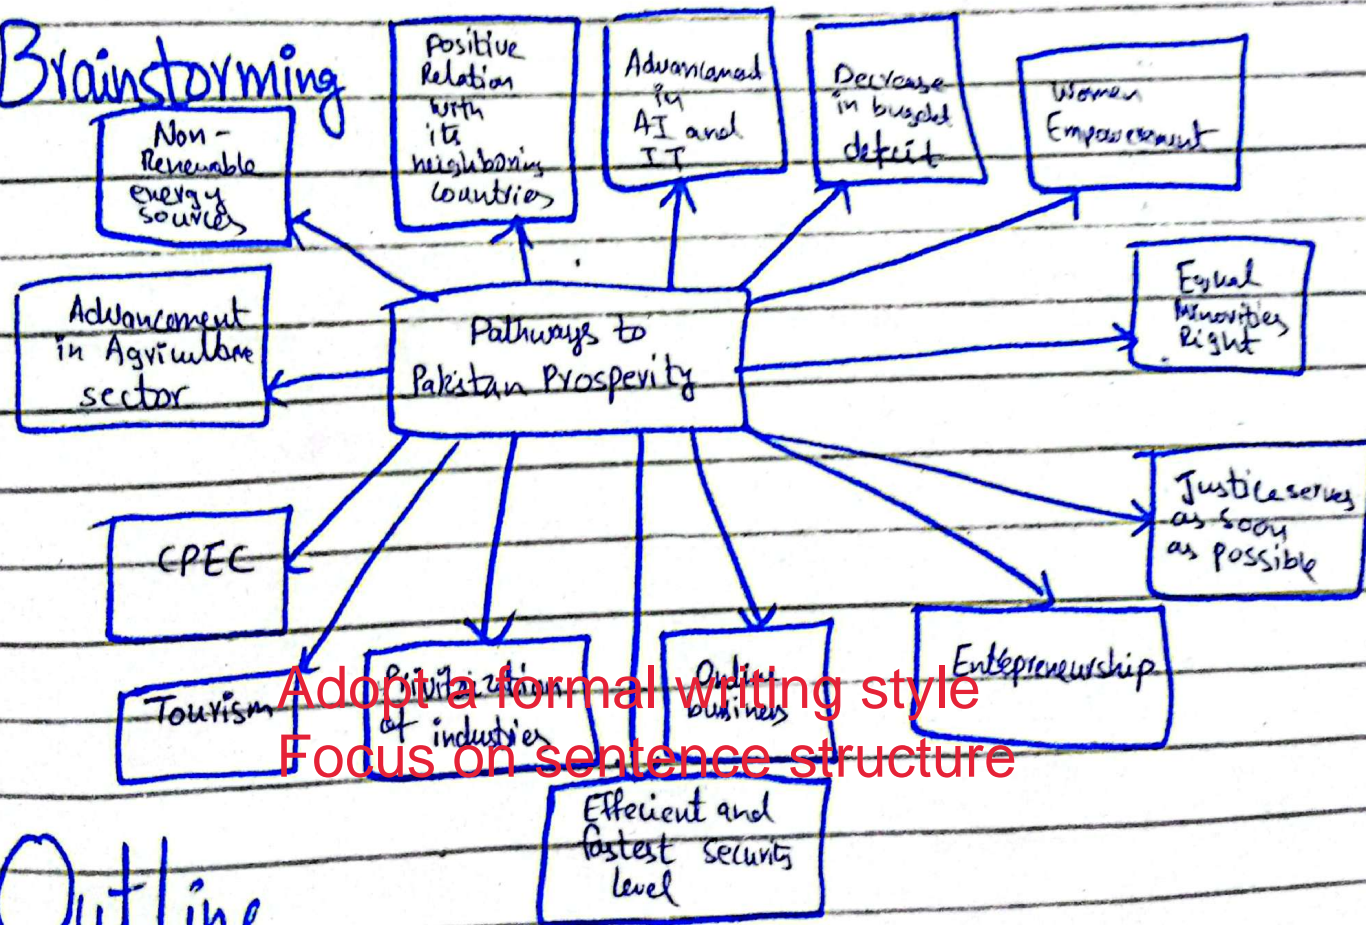 Brainstorming
Non-
Renewable
energy
sources
Positive
Relation
with
its
neighboring
countries
Advancement
in
AI and
IT
Decrease
in budget
deficit
Women
Empowerment
Advancement
in Agriculture
sector
Pathways to
Pakistan Prosperity
Equal
Minorities
Right
CPEC
Justice serves
as soon
as possible
Tourism
Privitization
of industries
Online
business
Entrepreneurship
Adopt a formal writing style
Focus on sentence structure
Effecient and
fastest security
level
Outline